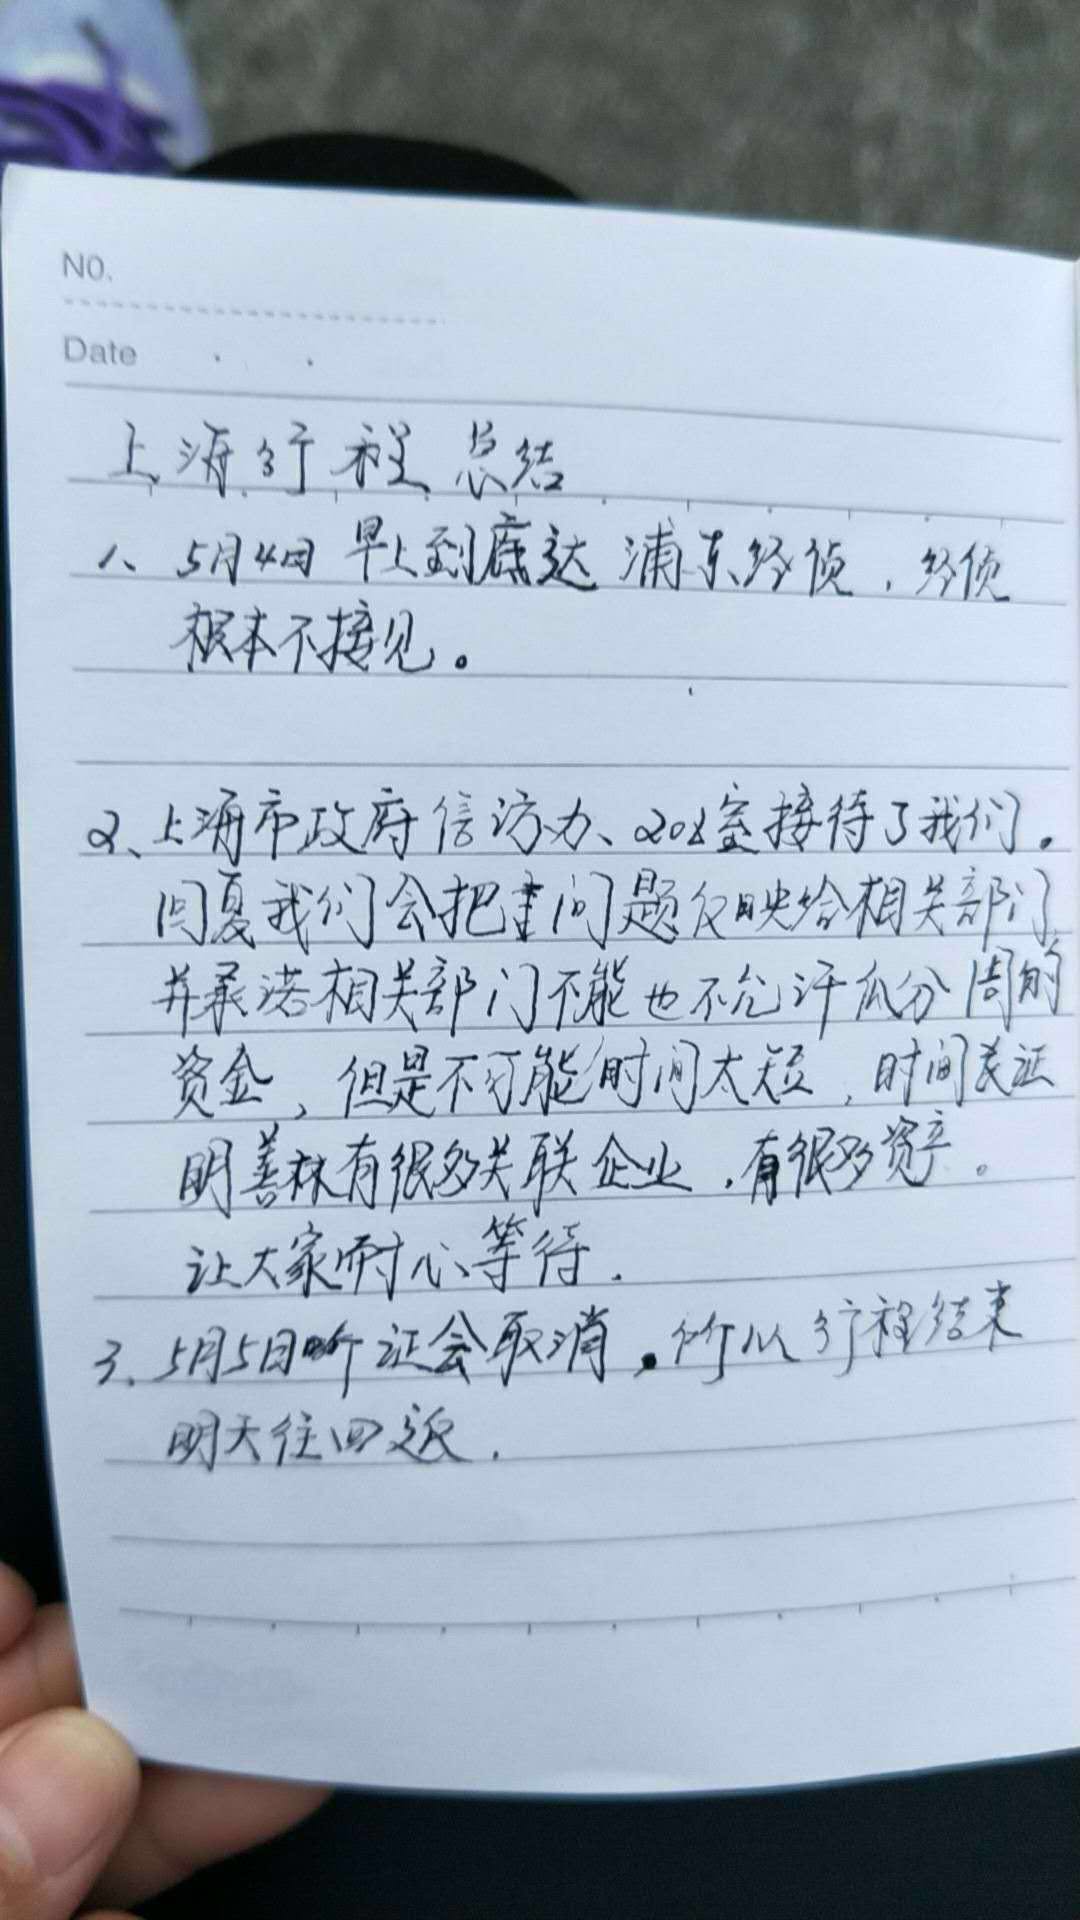 NO.
Date
上海行程总结
1、5月4日早上到底达浦东经侦，经侦
根本不接见。
2、上海市政府信访办、208室接待了我们。
回复我们会把问题反映给相关部门
并承诺相关部门不能也不允许瓜分周的
资金，但是不可能时间太短，时间长证
明善林有很多关联企业，有很多资产。
让大家耐心等待.
3、5月5日听证会取消。所以行程结束
明天往回返.